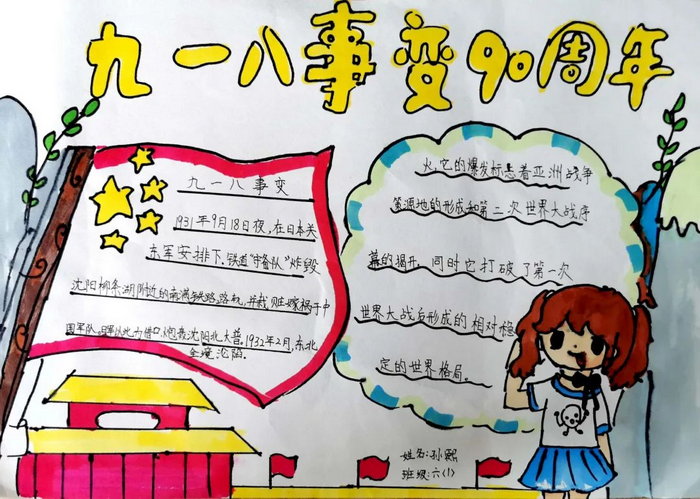 九一八事变90周年
九一八事变
1931年9月18日夜,在日本关
东军安排下,铁道"守备队"炸毁
沈阳柳条湖附近的南满铁路路轨,并栽赃嫁祸于中
国军队。日军以此为借口,炮轰沈阳北大营。1932年2月,东北
全境沦陷。
火,它的爆发标志着亚洲战争
策源地的形成和第二次世界大战序
幕的揭开,同时它打破了第一次
世界大战后形成的相对稳
定的世界格局。
姓名:孙熙
班级:六(1)